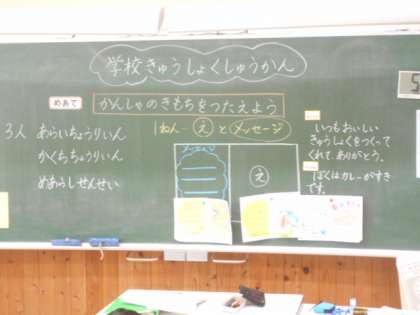 学校きゅうしょくしゅうかん
めあて
かんしゃのきもちをつたえよう
3人
あらいちょうりいん
かくちちょうりいん
めあらしせんせい
1ねん-えとメッセージ
メッセージ
え
いつもおいしい
きゅうしょくをつくって
くれて、ありがとう。
ぼくはカレーがすき
です。
5